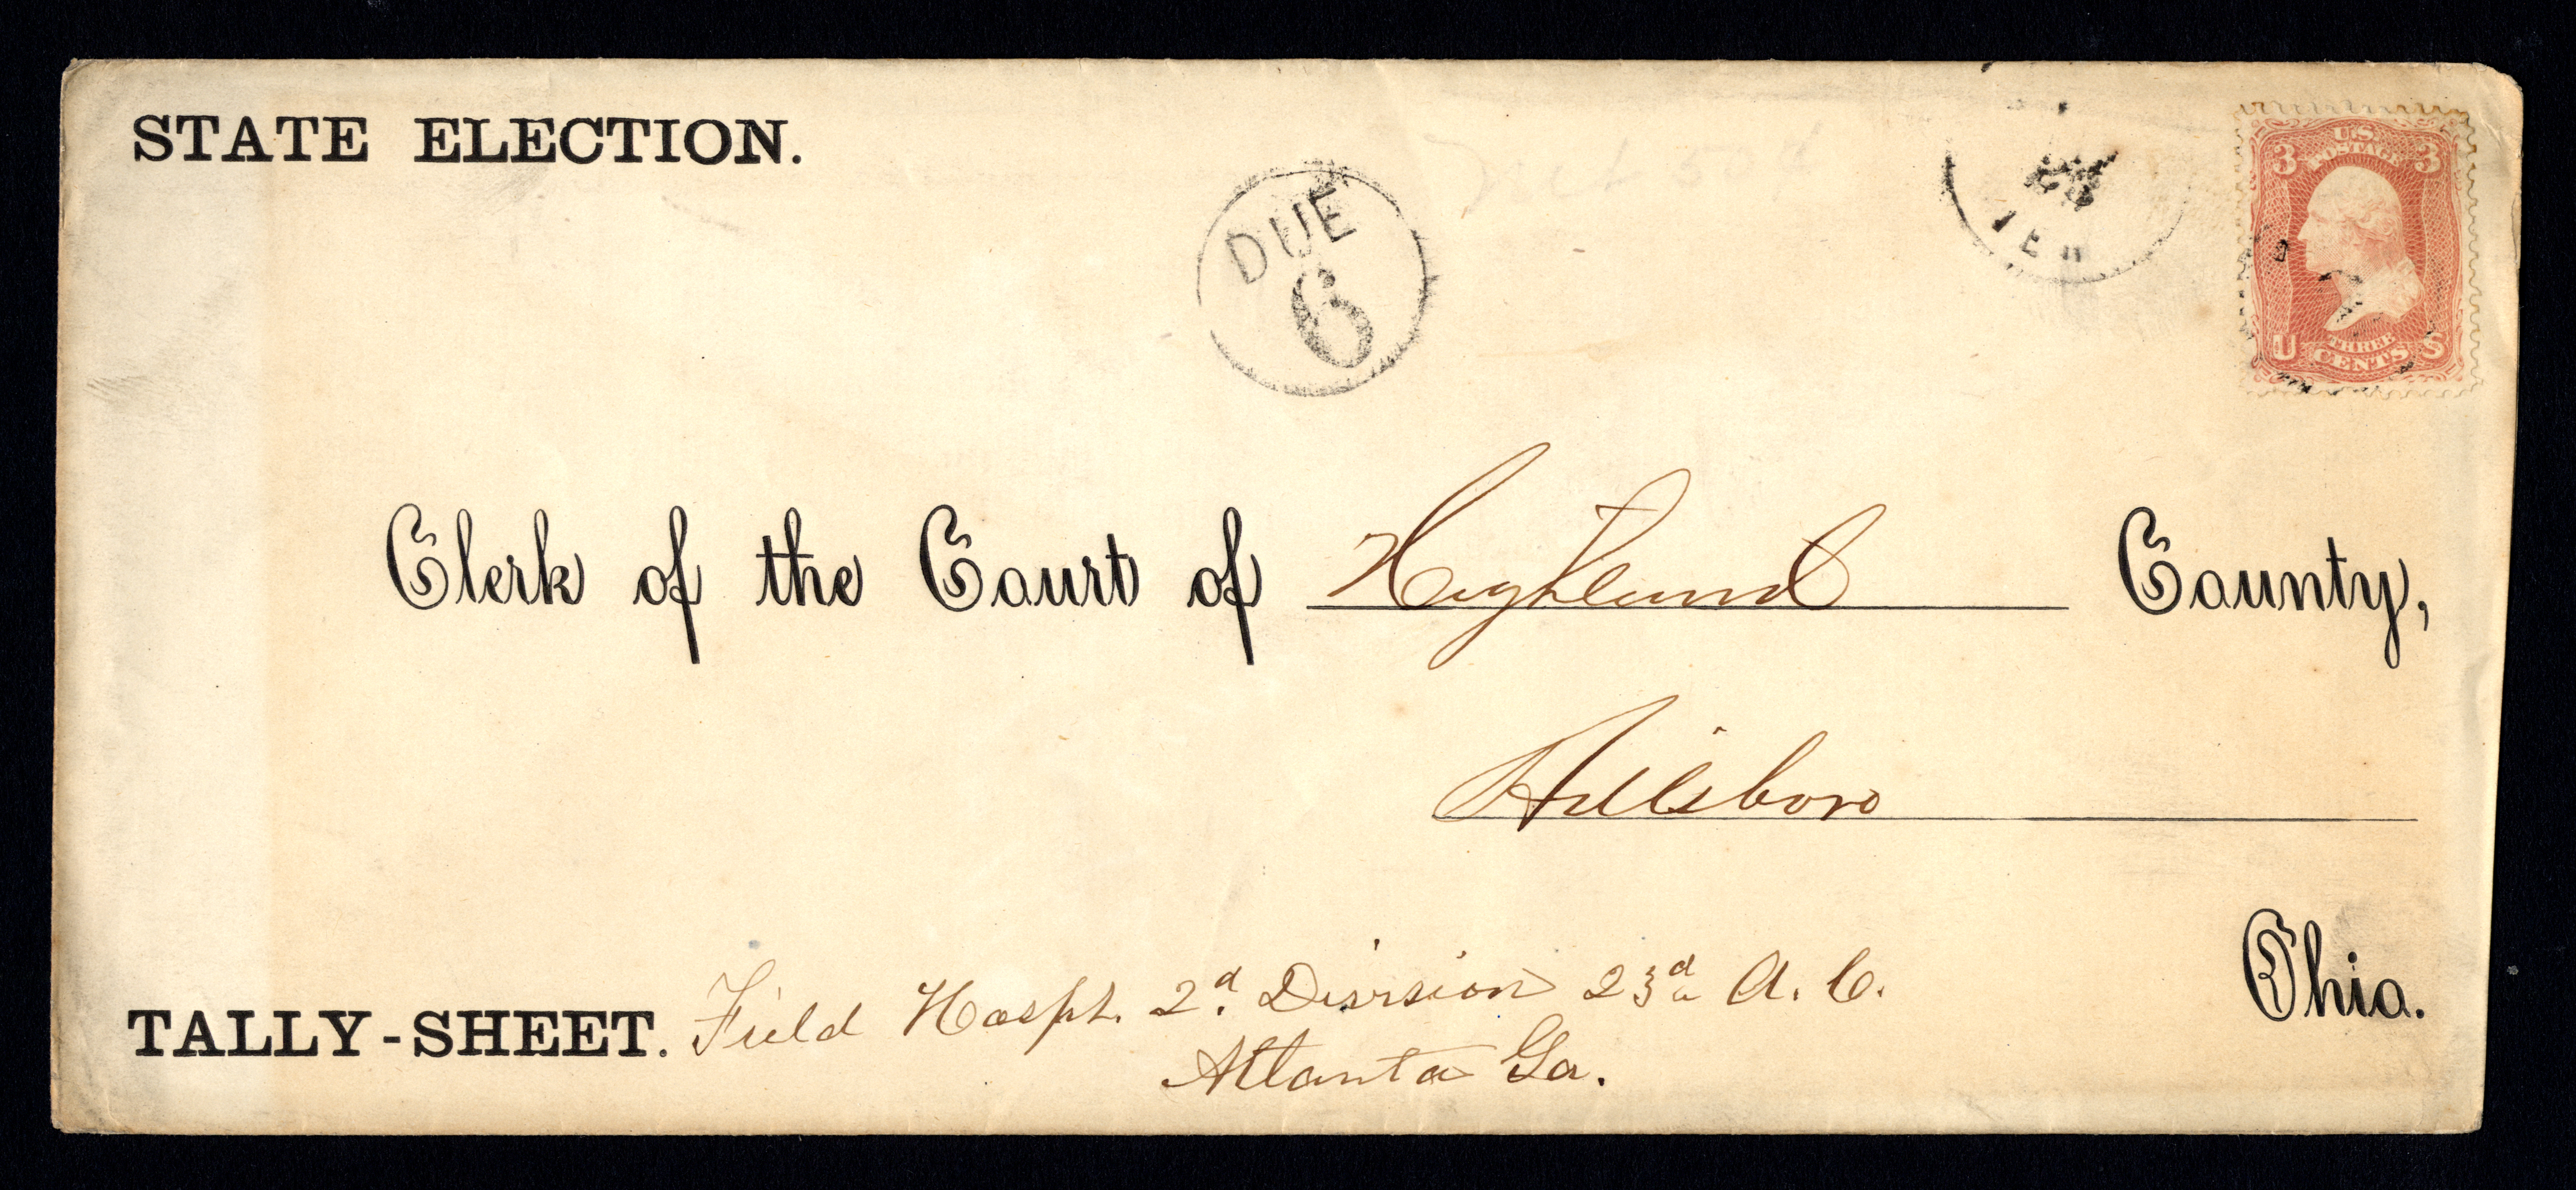 STATE ELECTION.
DUE
6
U.S.
POSTAGE
3 3
U THREE S
CENTS
Clerk of the Court of Highland County,
Hillsboro
Ohio.
TALLY-SHEET. Field Hospt. 2d. Division 23d A. C.
Atlanta Ga.